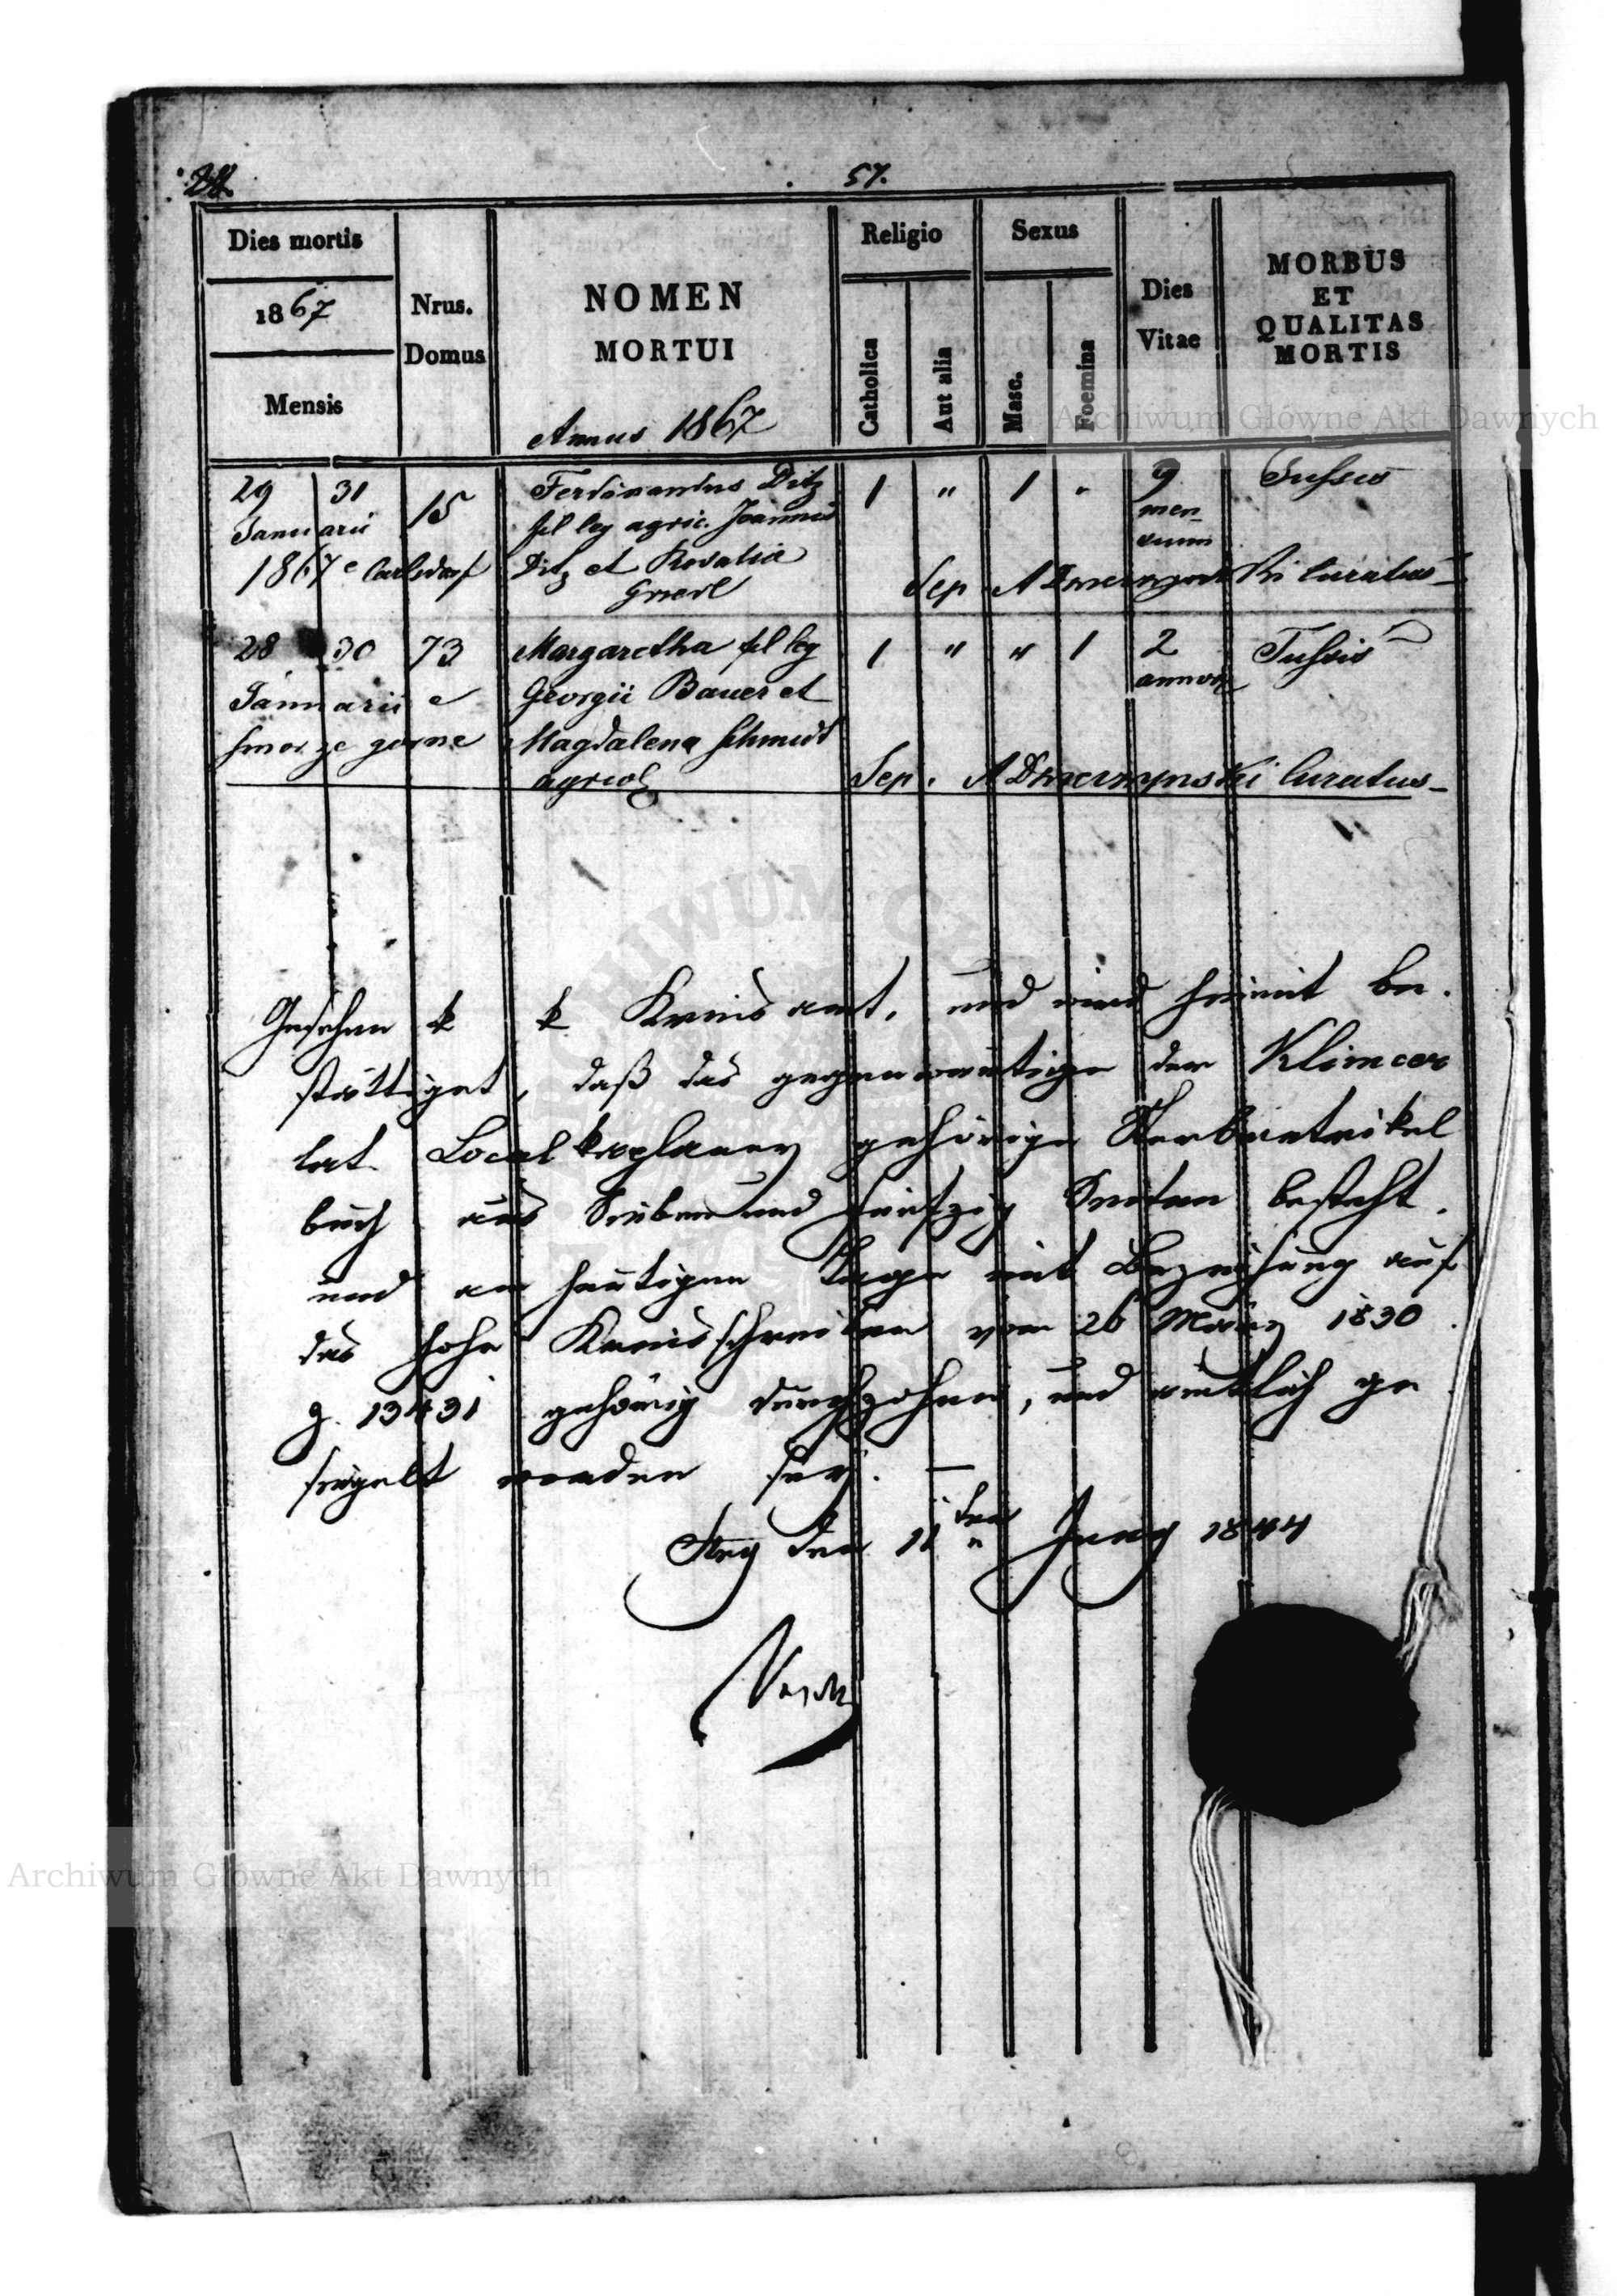 57.
Dies mortis
1867
Mensis
Nrus.
Domus
NOMEN
MORTUI
Annus 1867
Religio
Catholica
Aut alia
Sexus
Masc.
Foemina
Dies
Vitae
MORBUS
ET
QUALITAS
MORTIS
29 31 15 Ferdinandus Ditz 1 " 1 " 9 Tussis
Januarii fil leg agric. Joannis men
sium
1867 e Carlsdorf Ditz et Rosalia Sep A Dworzynski Curatus
28 30 73 Margaretha fil leg 1 " " 1 2 Tussis
Januarii e Georgii Bauer et annor
Smorze gorne Magdalena Schmidt
agricol Sep. A Dworzynski Curatus
Gesehen k k Kreisamt, und wird hiemit be.
stättiget, daß das gegenwärtige der Klimcer
lat. Localkaplaney gehörige Sterbmatrikel
buch aus Sieben und fünfzig Seiten besteht.
und am heutigen Tage mit Beziehung auf
das hohe Kreisschreiben vom 26 März 1830
z. 13431 gehörig durchzohen, und amtlich ge
siegelt worden sey. —
Stry den 11ten Juny 1844
Archiwum Główne Akt Dawnych
Archiwum Główne Akt Dawnych